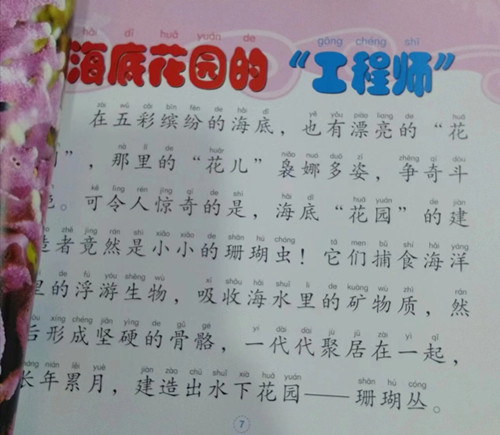 海底花园的“工程师”
在五彩缤纷的海底，也有漂亮的“花
”，那里的“花儿”袅娜多姿，争奇斗
艳。可令人惊奇的是，海底“花园”的建
造者竟然是小小的珊瑚虫！它们捕食海洋
里的浮游生物，吸收海水里的矿物质，然
后形成坚硬的骨骼，一代代聚居在一起，
长年累月，建造出水下花园——珊瑚丛。
7